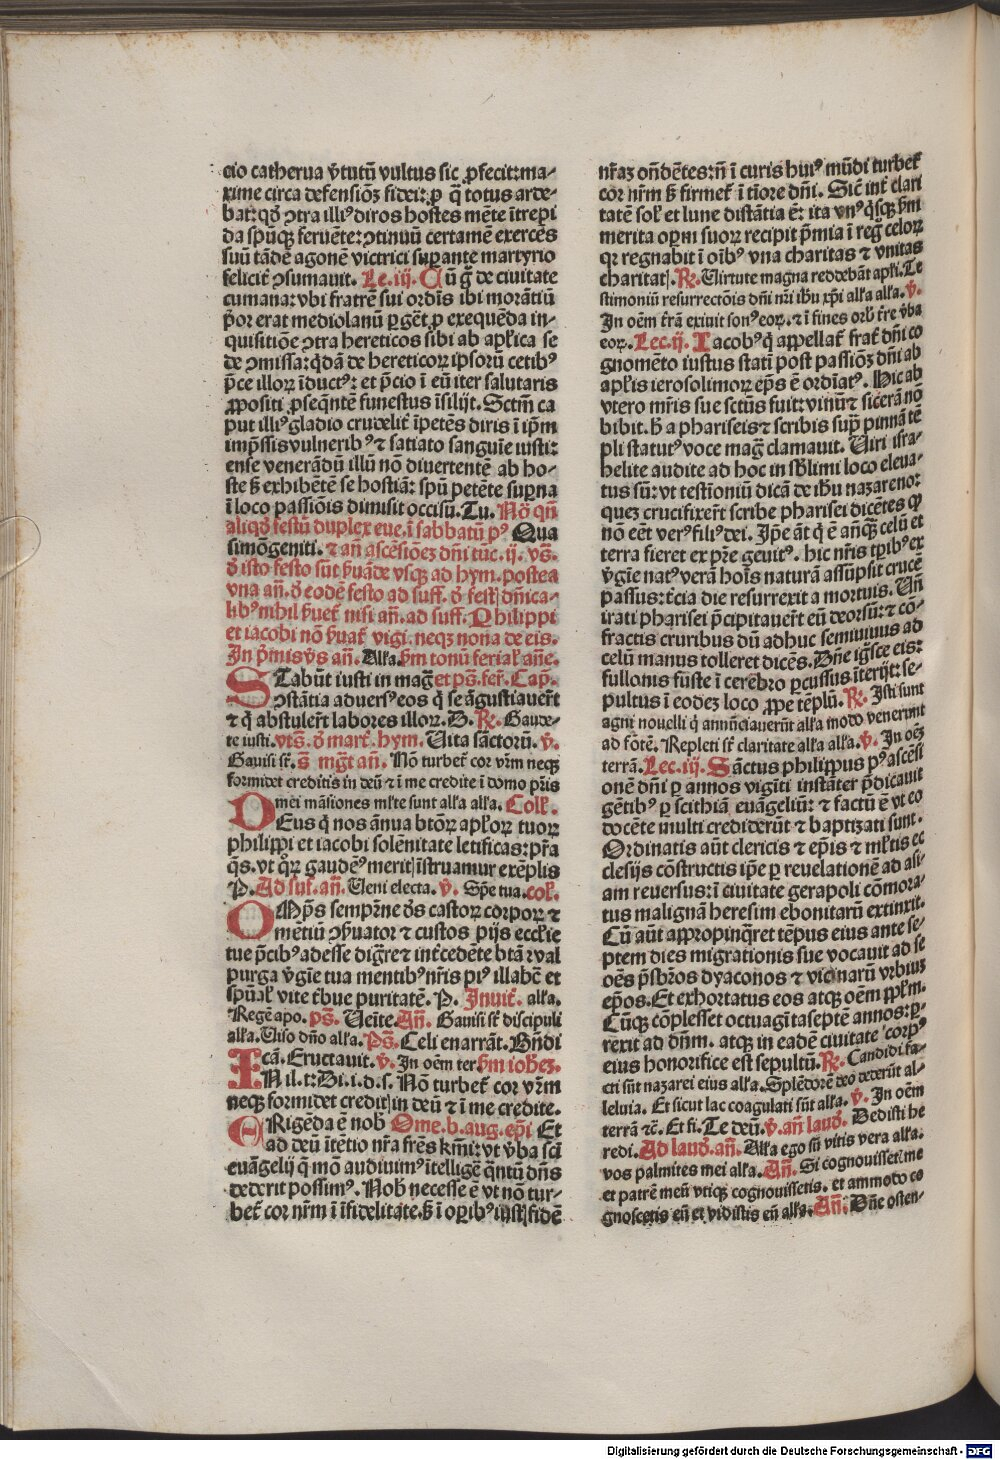 cio catherua v̾tutū vultus sic ꝓfecit: ma-
xime circa defensiōꝫ fidei: ꝓ q̄ totus arde-
bat: qꝺ̾ ꝯtra illiꝰ diros hostes mēte ītrepi
da spūqꝫ feruēte: ꝯtinuū certamē exercēs
suū tādē agonē victrici suꝑante martyrio
felicit̾ ꝯsumauit. Le. iij. Cū g̾ de ciuitate
cumana: vbi fratrē sui ordīs ibi morātiū
p̾or erat mediolanū ꝑgēt ꝓ exequēda in-
quisitiōe ꝯtra hereticos sibi ab apl̾ica se
de ꝯmissa: q̄dā de hereticoꝝ ipsorū cetibꝰ
p̄ce illoꝝ īductꝰ: et p̄cio ī eū iter salutaris
ꝓpositi ꝓseq̄ntē funestus īsilijt. Sctm̄ ca
put illiꝰ gladio crudelit̾ īpetēs diris ī ip̄m
imp̄ssis vulneribꝰ ⁊ satiato sanguīe iusti:
ense venerādū illū nō diuertentē ab ho-
ste ꝫ̾ exhibētē se hostiā: spū petēte suꝑna
ī loco passiōis dimisit occisū. Tu. No̾ qn̄
aliqꝺ̾ festū duplex eue. ī sabbatū pꝰ Qua
simōgeniti. ⁊ an̄ ascēsiōeꝫ dn̄i tūc. ij. vs̄.
ꝺ̾ isto festo sūt ẜuāde vsqꝫ ad hym. postea
vna an̄. ꝺ̾ eodē festo ad suff. ꝺ̾ fest dn̄ica-
libꝰ nihil ẜuet̾ nisi an̄. ad suff. Philippi
et iacobi nō ẜuat̾ vigi. neqꝫ nona de eis.
In p̾mis vs̾ an̄. Alla. ẜm tonū ferial̾ an̄e.
STabūt iusti in maḡ et ps̄. fer̾. Cap̄.
ꝯstātia aduersꝰ eos q̾ se āgustiauer̄t
⁊ q̾ abstuler̄t labores illoꝝ. D. ℟. Gaude-
te iusti. vts̄. ꝺ̾ mart̾. hym. Uita sāctorū. v̾.
Gauisi st̄. s̄ mg̾t an̄. Nō turbet̾ cor vr̄m neqꝫ
formidet creditis in deū ⁊ ī me credite ī domo pr̄is
mei māsiones ml̾te sunt alla alla. Coll̾.
DEus q̾ nos ānua btōꝝ apl̾oꝝ tuoꝝ
philippi et iacobi solēnitate letificas: pr̄a
q̄s. vt qͦꝝ gaudēꝰ merit īstruamur exēplis
P. Ad suf̾. an̄. Ueni electa. v̾. Spe tua. col̾.
OMp̄s semꝑne ds̄ castoꝝ corpoꝝ ⁊
mētiū ꝯẜuator ⁊ custos pijs eccl̾ie
tue p̄cibꝰ adesse dig̾re ⁊ int̾cedēte btā ꝛ val
purga v̾gīe tua mentibꝰ nr̄is piꝰ illabe̾ et
spūal̾ vite tͥbue puritatē. P. Inuit̾. alla.
Regē apo. ps̄. Ueīte. An̄. Gauisi st̄ discipuli
alla. Uiso dn̄o alla. Ps̄. Celi enarrāt. Bn̄di
cā. Eructauit. v̾. In oēm ter ẜm iohēꝫ.
INil. t: Di. i. d. s. Nō turbet̾ cor vr̄m
neqꝫ formidet credit in deū ⁊ ī me credite.
ERigēda ē nob̾ Ome. b. aug. ep̄i Et
ad deū ītētio nr̄a fr̄es km̄i: vt v̾ba sci
euāgelij q̄ mō audiuimꝰ ītellige̾ qn̄tū dn̄s
dederit possimꝰ. Nob̾ necesse ē vt nō tur-
bet̾ cor nr̄m ī īfidelitate. ꝫ̾ ī oꝑibꝰ iust fidē
nr̄aꝫ on̄dētes: n̄ ī curis huiꝰ mūdi turbet̾
cor nr̄m ꝫ̾ firmet̾ ī tīore dn̄i. Sic̄ int̾ clari
tatē sol̾ et lune distātia ē: ita vnꝰqͥsqꝫ ẜm
merita oꝑm suoꝝ recipit p̄mia ī reg̾ celoꝝ
qꝛ regnabit ī oībꝰ vna charitas ⁊ vnitas
charitat. ℟. Uirtute magna reddebāt apl̾i. Te
stimoniū resurrectōis dn̄i nr̄i ihū xp̄i alla alla. v̾.
In oēm t̾rā exiuit sonꝰ eoꝝ. ⁊ ī fines orb̾ t̾re v̾ba
eoꝝ. Lec. ij. Iacobꝰ q̾ appellat̾ frat̾ dn̄i co
gnomēto iustus statī post passiōꝫ dn̄i ab
apl̾is ierosolimoꝝ ep̄s ē ordīatꝰ. Hic ab
vtero mr̄is sue sctūs fuit: vinū ⁊ sicerā nō
bibit. h̾ a phariseis ⁊ scribis supͣ pinnā tē
pli statutꝰ voce mag̾ clamauit. Uiri isra-
helite audite ad hoc in sb̾limi loco eleua-
tus sū: vt testīoniū dicā de ihū nazareno:
queꝫ crucifixer̄t scribe pharisei dicētes ꝙ
nō eēt verꝰ filiꝰ dei. Ip̄e āt q̾ ē anteqꝫ celū et
terra fieret ex pr̄e genitꝰ. hic nr̄is tꝑibꝰ ex
v̾gīe natꝰ verā hoīs naturā assūpsit crucē
passus: t̾cia die resurrexit a mortuis. Un̄
irati pharisei p̄cipitauer̄t eū deorsū: ⁊ cō-
fractis cruribus dū adhuc semiuiuus ad
celū manus tolleret dicēs. Dn̄e ig̾sce eis:
fullonis fūste ī cerēbro ꝑcussus īterijt: se-
pultus ī eodeꝫ loco ꝓpe tēplū. ℟. Isti sunt
agni nouelli q̾ annūciauerūt alla modo venerunt
ad fōtē. Repleti st̄ claritate alla alla. v̾. In oēꝫ
terrā. Lec. iij. Sāctus philippus pꝰ ascēsi
onē dn̄i ꝑ annos vigīti instāter p̄dicauit
gētibꝰ ꝑ scithiā euāgeliū: ⁊ factū ē vt eo
docēte multi crediderūt ⁊ baptizati sunt.
Ordinatis aūt clericis ⁊ ep̄is ⁊ ml̾tis ec
clesijs cōstructis ip̄e ꝑ reuelationē ad asi-
am reuersus: ī ciuitate gerapoli cōmora-
tus malignā heresim ebonitarū extinxit.
Cū aūt appropinq̄ret tēpus eius ante se-
ptem dies migrationis sue vocauit ad se
oēs p̄sb̾ros dyaconos ⁊ vicinarū vrbiuꝫ
ep̄os. Et exhortatus eos atqꝫ oēm ppl̾m.
Cūqꝫ cōplesset octuagītaseptē annos: ꝑ-
rexit ad dn̄m. atqꝫ in eadē ciuitate corpꝰ
eius honorifice est sepultū. ℟. Candidi fa-
cti sūt nazarei eius alla. Splēdorē deo dederūt al-
leluia. Et sicut lac coagulati sūt alla. v̾. In oēm
terrā ⁊c̄. Et fi. Te deū. v̾. an̄ laud̾. Dedisti he
redi. Ad laud̾. an̄. Alla ego sū vitis vera alla.
vos palmites mei alla. An̄. Si cognouisseti me
et patrē meū vtiqꝫ cognouissetis. et ammodo co
gnoscetis eū et vidistis eū alla. An̄. Dn̄e osten-
Digitalisierung gefördert durch die Deutsche Forschungsgemeinschaft - DFG